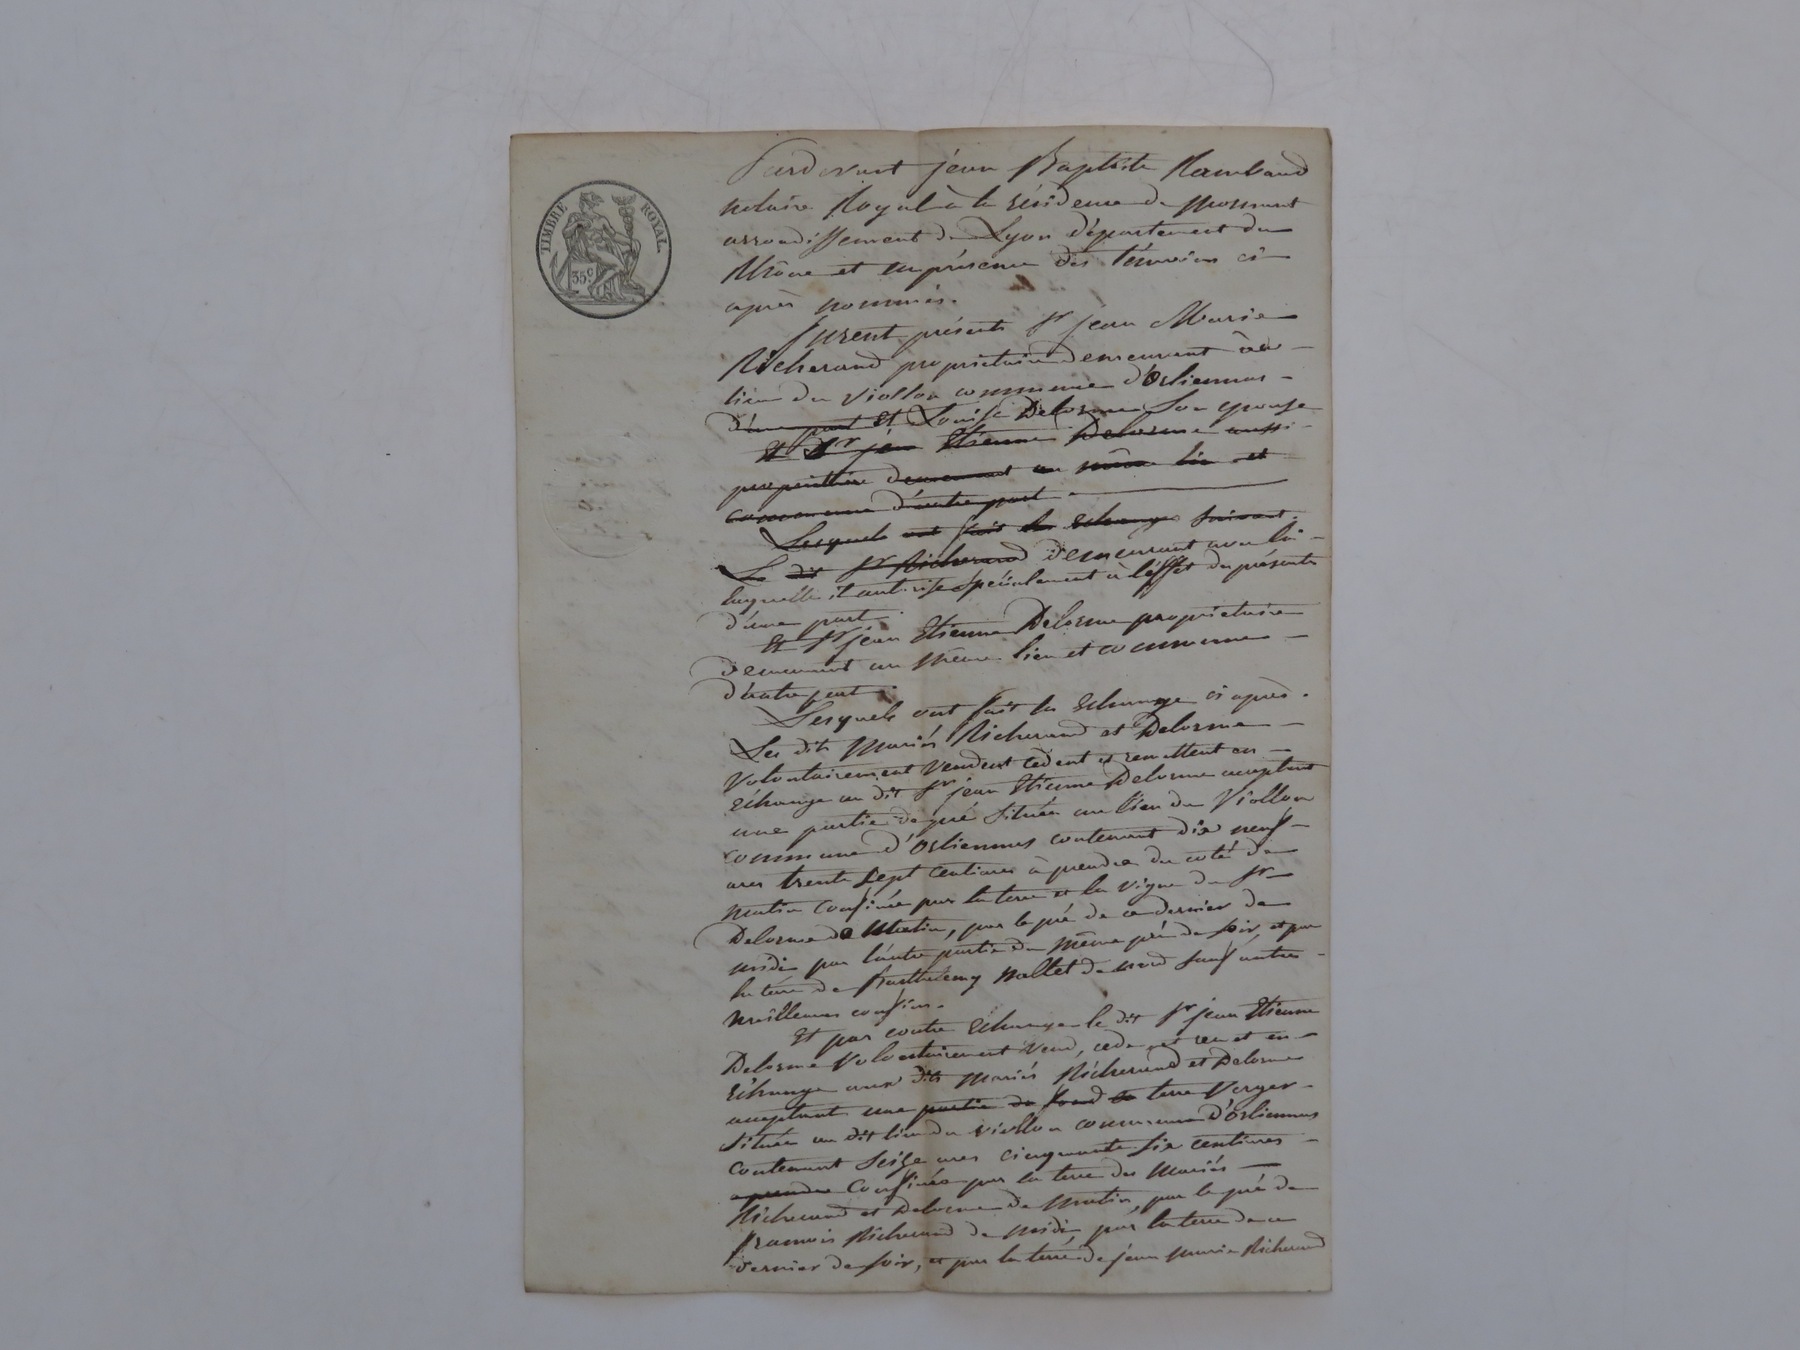 TIMBRE ROYAL
35c
Pardevant jean Baptiste Rambaud
notaire Royal à la résidence de Mornant
arrondissement de Lyon département du
Rhône et en présence des témoins ci
après nommés.
furent présents Sr jean Marie
Richerand propriétaire demeurant au
lieu du Viollon commune d'Orliennas
d'une part Et Louise Delorme Son epouse
Et Sr jean Etienne Delorme aussi
propriétaire demeurant au même lieu et
commune d'autre part
Lesquels ont fait les Echanges Suivant.
Le dit Sr Richerand demeurant avec lui
laquelle il autorise Spécialement à l'éffet des présentes
d'une part
Et Sr jean Etienne Delorme propriétaire
demeurant au même lieu et commune
d'autre part
Lesquels ont fait les Echange ci après.
Les dits mariés Richerand et Delorme
Volontairement Vendent cedent et remettent en
Echange au dit Sr jean Etienne Delorme acceptant
une partie de pré Située au lieu du Viollon
commune d'Orliennas contenant dix neuf
ares trente Sept Centiares à prendre du coté de
matin Confinée par la terre et la vigne du Sr
Delorme de Matin, par le pré de ce dernier de
midi par l'autre partie du même pré de Soir, et par
la terre de Barthelemy Mallet de nord Sauf autres
meilleurs confins.
Et par contre Echange le dit Sr jean Etienne
Delorme Volontairement Vend, cede et remet en
Echange aux dits mariés Richerand et Delorme
acceptant une partie de fond de terre Verger
Située au dit lieu du Viollon commune d'Orliennas
contenant Seize ares cinquante Six centiares
aprendre Confinée par la terre des mariés
Richerand et Delorme de matin, par le pré de
francois Richerand de midi, par la terre de ce
dernier de Soir, et par la terre de jean marie Richerand